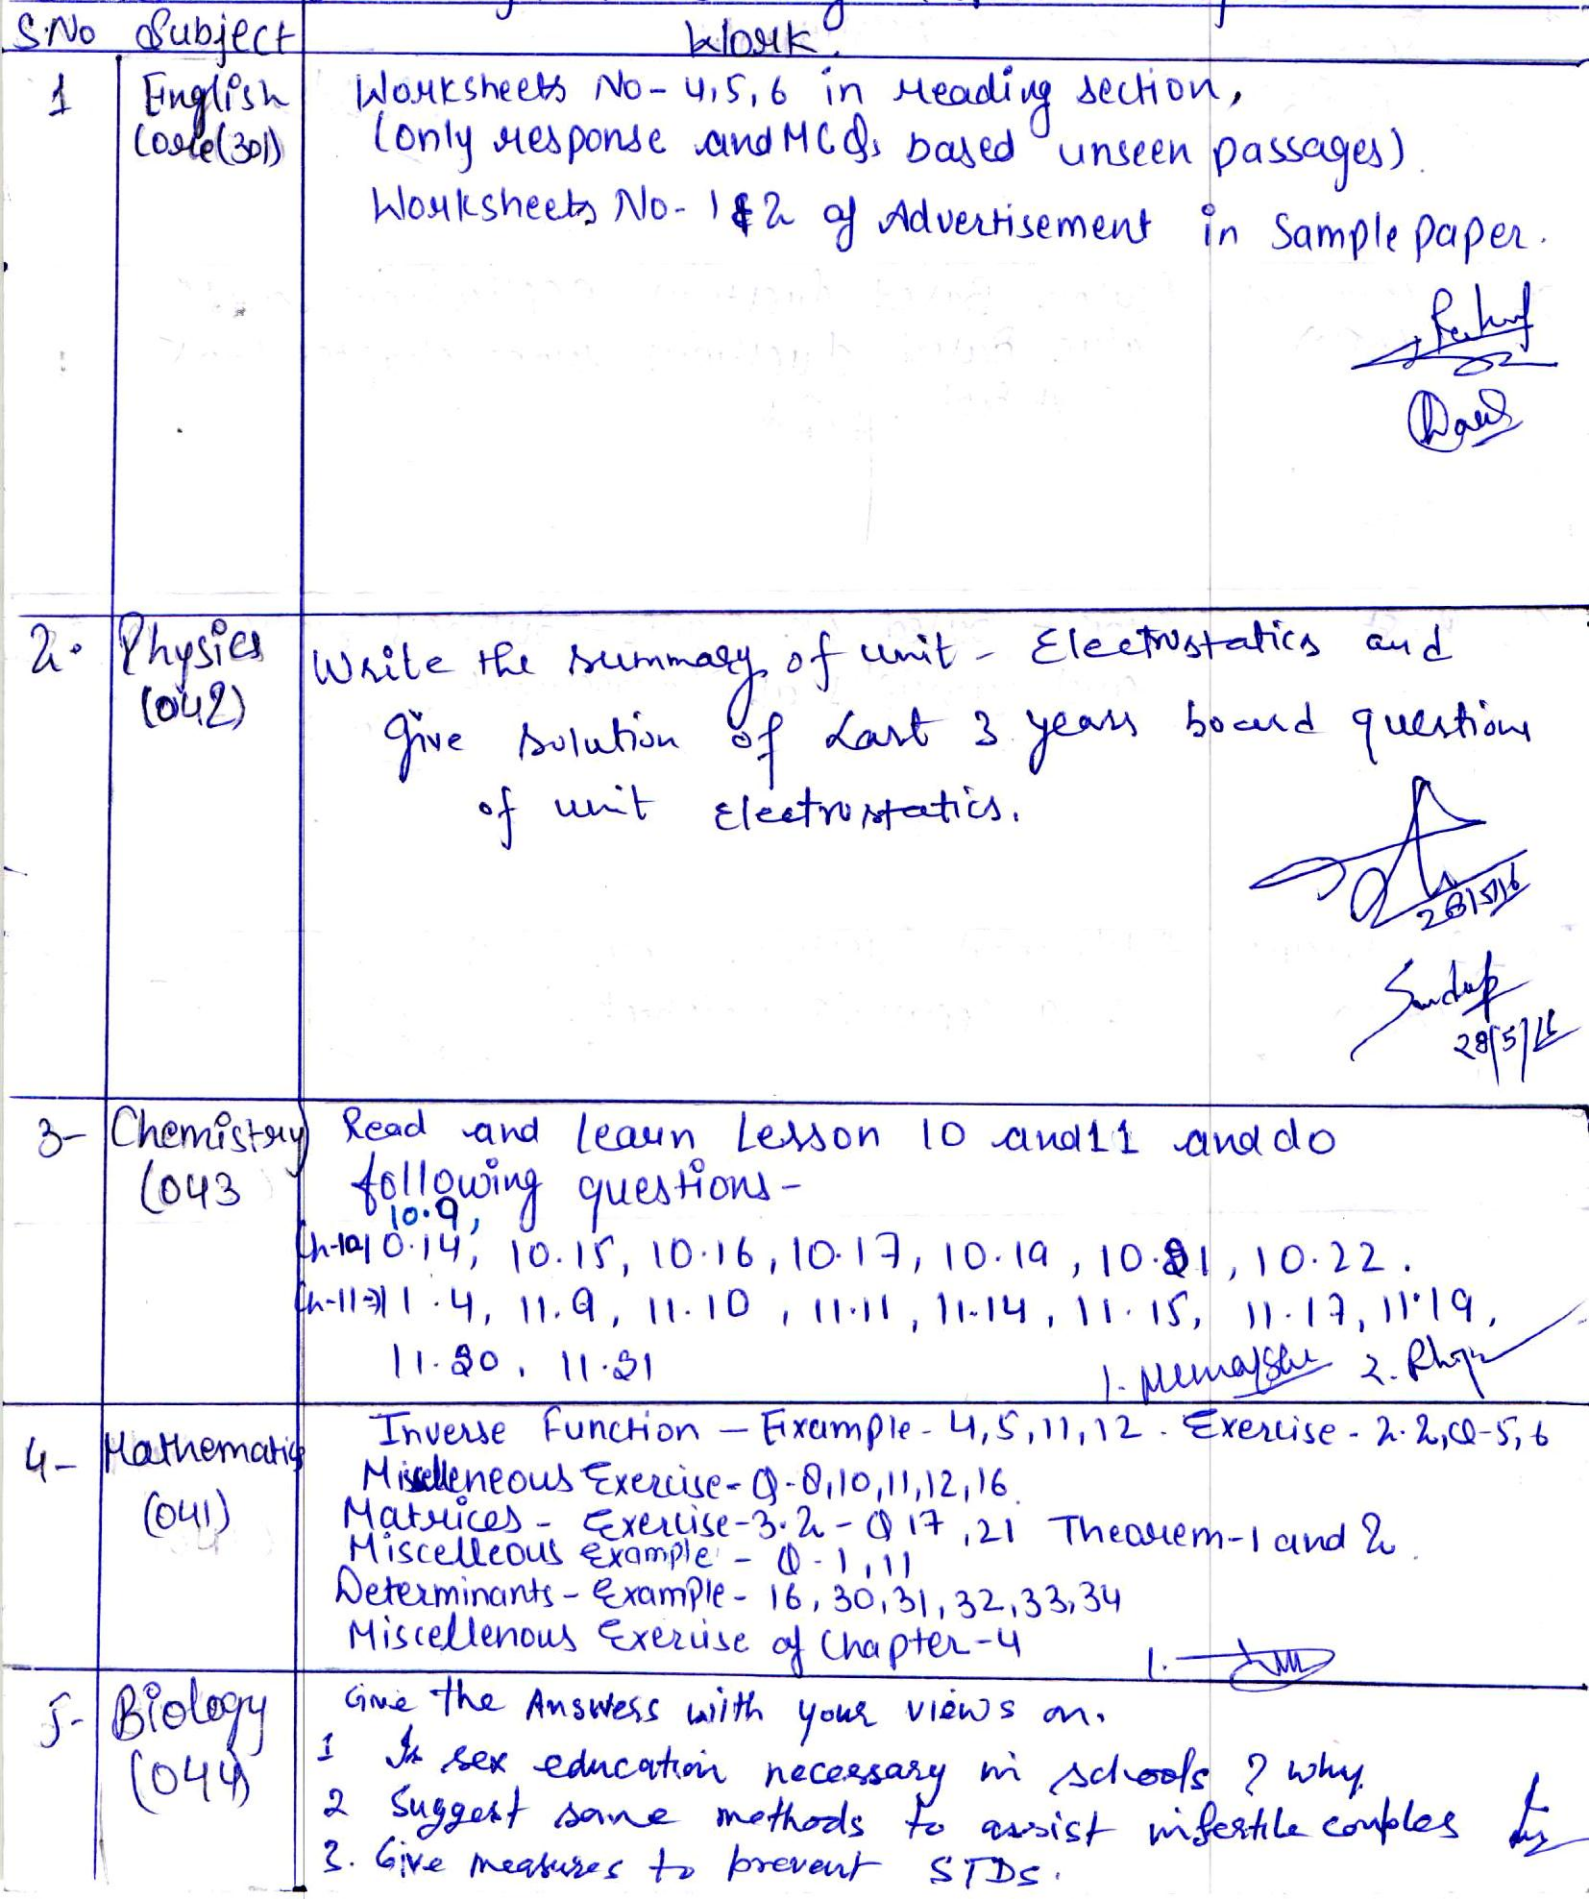 S.No Subject Work.
1 English Worksheets No- 4,5,6 in reading section,
Core(301) (only response and MCQs based unseen passages).
Worksheets No- 1 & 2 of Advertisement in Sample paper.
2. Physics Write the summary of unit - Electrostatics and
(042) Give solution of Last 3 years board questions
of unit Electrostatics.
28/5/16
Sandeep
28/5/16
3- Chemistry Read and learn Lesson 10 and 11 and do
(043 following questions-
10.9,
Ch-10) 10.14, 10.15, 10.16, 10.17, 10.19, 10.21, 10.22.
Ch-11→) 11.4, 11.9, 11.10, 11.11, 11.14, 11.15, 11.17, 11.19,
11.20, 11.21
1. 2.
4- Mathematics Inverse Function - Example- 4,5,11,12. Exercise- 2.2, Q-5,6
(041) Miselleneous Exercise- Q-8,10,11,12,16
Matrices - Exercise-3.2 - Q 17, 21 Theorem-1 and 2.
Miscelleous Example - Q-1,11
Determinants - Example- 16, 30,31, 32,33,34
Miscellenous Exercise of Chapter-4
1.
5- Biology Give the Answers with your views on.
(044) 1 Is sex education necessary in schools ? why.
2 Suggest some methods to assist infertile couples
3. Give measures to prevent STDs.